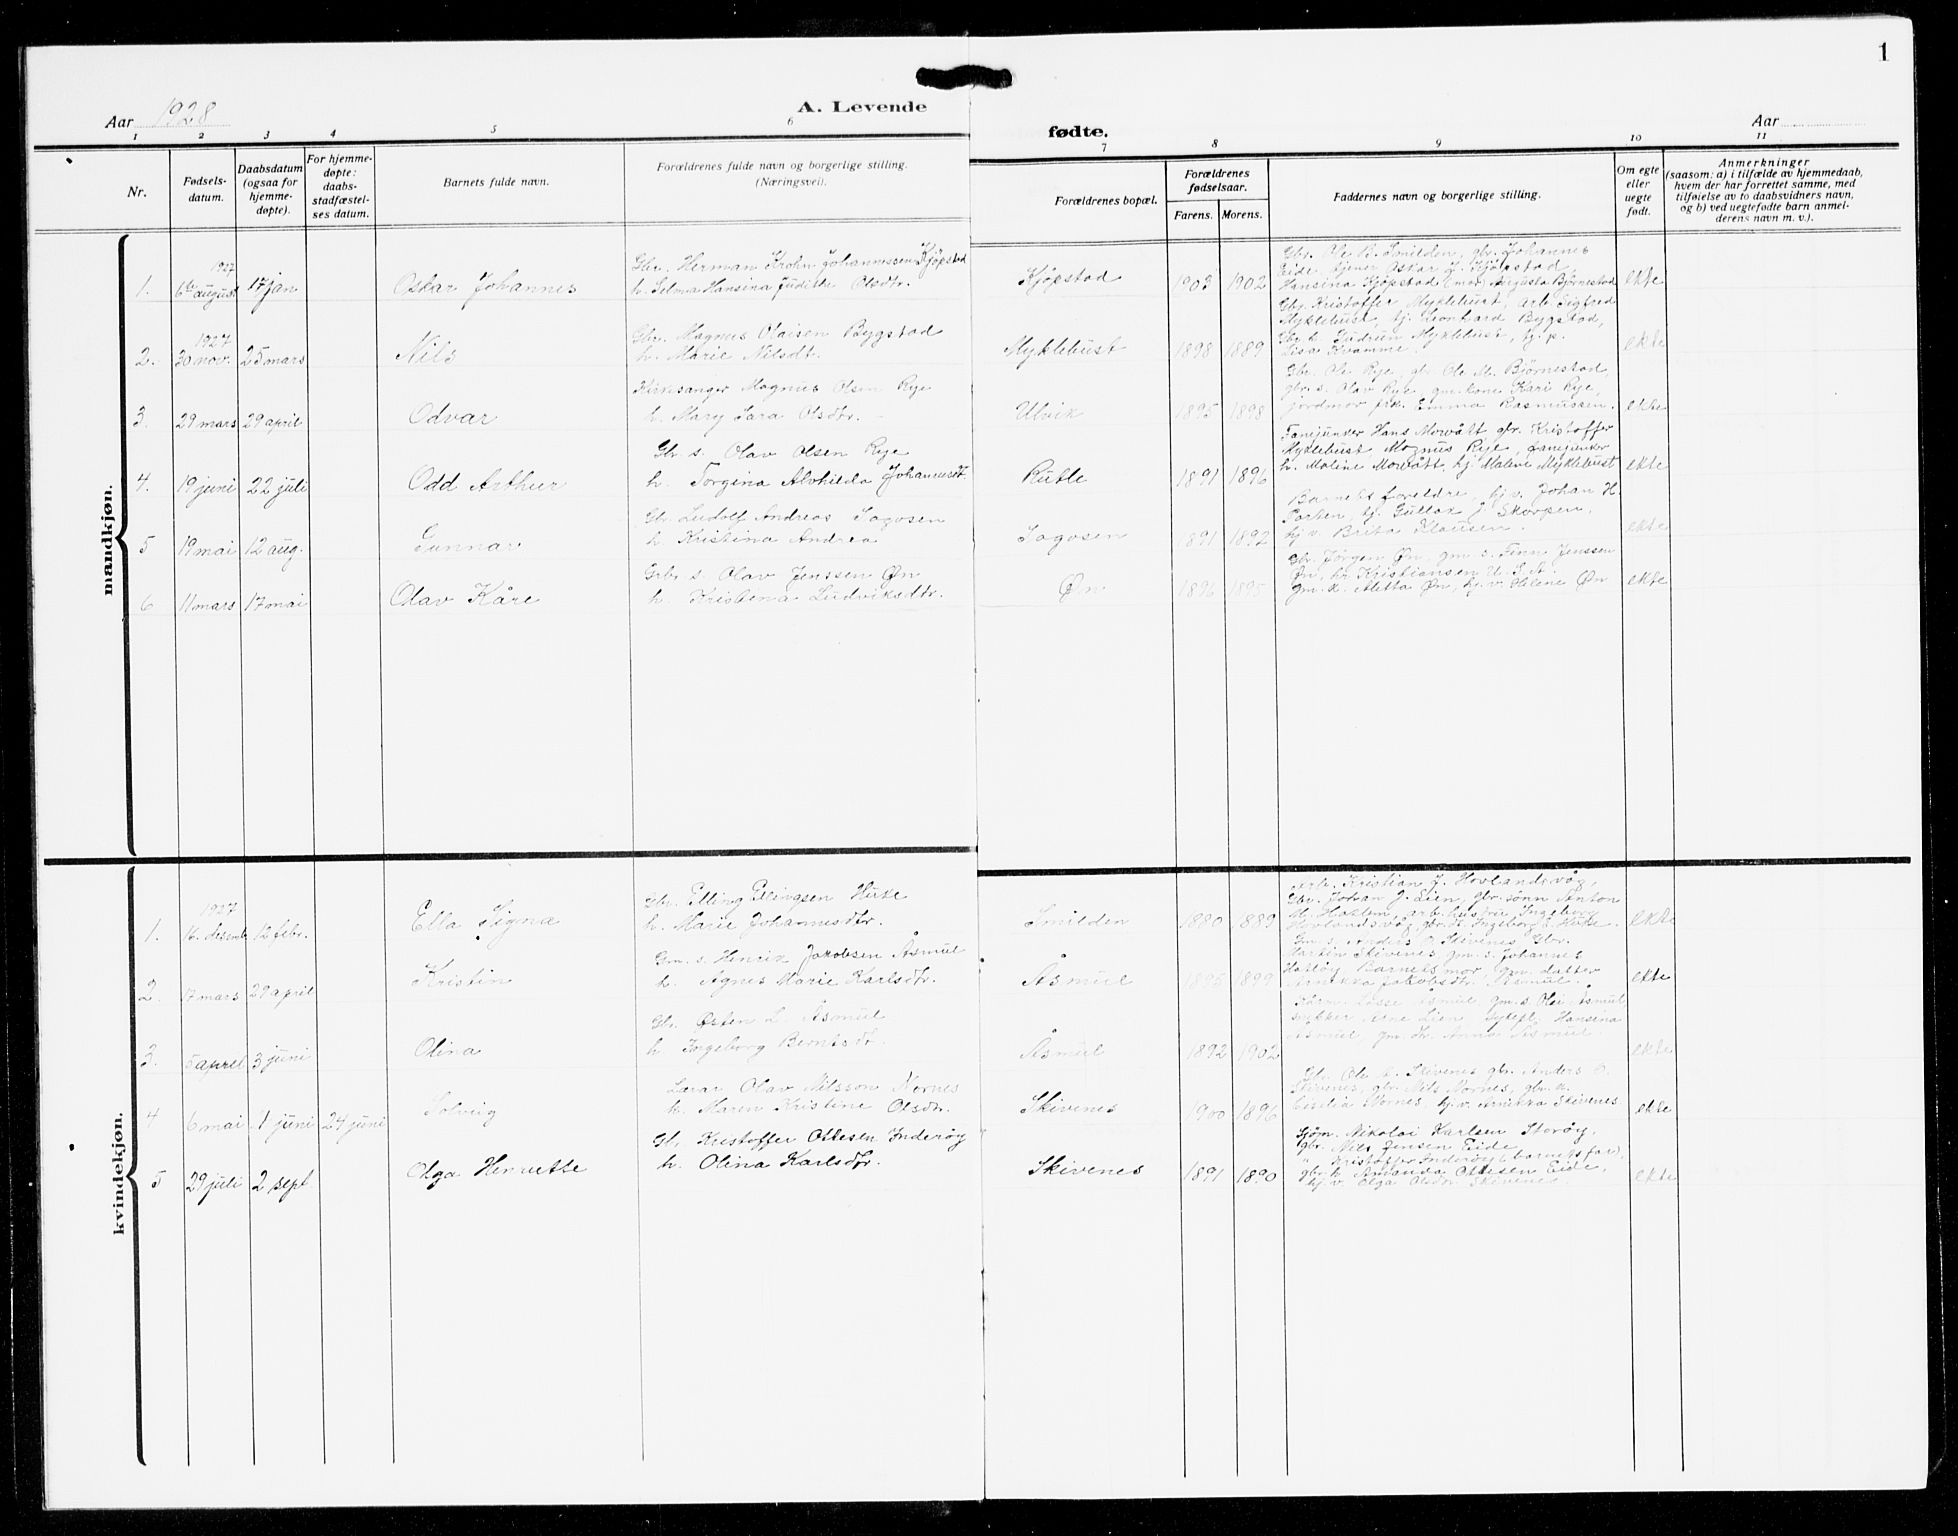 1
Aar 1928
A. Levende
fødte.
Aar
1 2 3 4 5 6 7 8 9 10 11
Nr.
Fødsels-
datum.
Daabsdatum
(ogsaa for
hjemme-
døpte).
For hjemme-
døpte:
daabs-
stadfæstel-
ses datum.
Barnets fulde navn.
Forældrenes fulde navn og borgerlige stilling.
(Næringsvei).
Forældrenes bopæl.
Forældrenes
fødselsaar.
Farens. Morens.
Faddernes navn og borgerlige stilling.
Om egte
eller
uegte
født.
Anmerkninger
(saasom: a) i tilfælde av hjemmedaab,
hvem der har forrettet samme, med
tilføielse av to daabsvidners navn,
og b) ved uegtefødte barn anmel-
derens navn m. v.).
mandkjøn.
1. 1927 6te august 17 jan Oskar Johannes
Gbr. Herman Krohn Johannessen Kjøpstad
h. Selma Hansina Judithe Olsdtr.
Kjøpstad 1903 1902
Gbr. Ole B. Smilden, gbr. Johannes
Eide, tjener Oskar J. Kjøpstad
Hansina Kjøpstad (mor) Augusta Bjørnestad
ekte
2. 1927 30 nov. 25 mars Nils
Gbr. Magnus Olaisen Bygstad
h. Marie Nilsdt.
Myklebust 1898 1889
Gbr. Kristoffer Myklebust, arb. Sigfred
Myklebust, tj. Leonhard Bygstad,
Gbr. h. Gudrun Myklebust, tj. p.
Lisa Kvamme.
ekte
3. 29 mars 29 april Odvar
Kirksanger Magnus Olsen Rye
h. Mary Sara Olsdtr.
Ulvik 1895 1898
Gbr. Ole Rye, gbr. Ole M. Bjørnestad,
gbr. s. Olav Rye, gm. kone Kari Rye,
jordmor frk. Emma Rasmussen.
ekte
4. 19 juni 22 juli Odd Arthur
Gbr. s. Olav Olsen Rye
h. Torgina Alvhilda Johannesdt.
Rutle 1891 1896
Fanejunker Hans Mowatt gbr. Kristoffer
Myklebust Magnus Rye, fanejunker
h. Maline Mowatt, hj. Malene Myklebust
ekte
5 19 mai 12 aug. Gunnar
Gbr. Ludolf Andreas Sagosen
h. Kristina Andrea
Sagosen 1891 1892
Barnets foreldre, hj. v. Johan H.
tj. Gullak J. Skorpen,
hj. v. Brita Klausen.
ekte
6 11 mars 17 mai Olav Kåre
Gbr. s. Olav Jenssen Øn
h. Kristina Ludviksdtr.
Øn 1896 1895
Gbr. Jørgen Øn, gm. s. Finn Jenssen
Øn, hr. Kristiansen U. S. A.
gm. k. Aletta Øn, hj. v. Helene Øn
ekte
kvindekjøn.
1. 1927 16. desemb. 12 febr. Ella Signa
Gbr. Elling Elingsen Huke
h. Marie Johannesdtr.
Smilden 1880 1889
Arb. Kristian J. Hovlandsvåg,
Gbr. Johan J. Lien, gbr. sønn Anton
M. Hatlem, arb. hustru Ingeborg
Hovlandsvåg, gbr. h. Ingeborg E. Huke.
ekte
2. 17 mars 29 april Kristin
Gm. s. Henrik Jakobsen Åsmul
h. Agnes Marie Karlsdtr.
Åsmul 1895 1899
Gm. s. Anders O. Skivenes Gbr.
Martin Skivenes, gm. s. Johannes
Hatløy, Barnets mor, gm. datter
Annikka Jakobsdtr. Åsmul.
ekte
3. 5 april 3 juni Olina
Gbr. Østen L. Åsmul
h. Ingeborg Berntsdt.
Åsmul 1892 1902
Kårm. Lasse Åsmul gm. s. Olai Åsmul
Arne Lien, Hansina
Åsmul, gm. h. Anna Åsmul
ekte
4 6 mai 1 juni 24 juni Solveig
Lærar Olav Nilsson Nornes
h. Maren Kristine Olsdtr.
Skivenes 1900 1896
Gbr. Ole A. Skivenes gbr. Anders O.
Skivenes, gbr. Nils Nornes, gbr. k.
Cecilia Nornes hj. v. Annikka Skivenes
ekte
5 29 juli 2 sept. Olga Henriette
Gbr. Kristoffer Ottesen Inderøy
h. Olina Karlsdtr.
Skivenes 1891 1890
Sjøm. Nikolai Karlsen Storøy,
gbr. Nils Jensen Eide,
" Kristoffer Inderøy (barnets far),
gbr. k. Amanda Ottesen Eide,
hj. v. Olga Olsdtr. Skivenes.
ekte